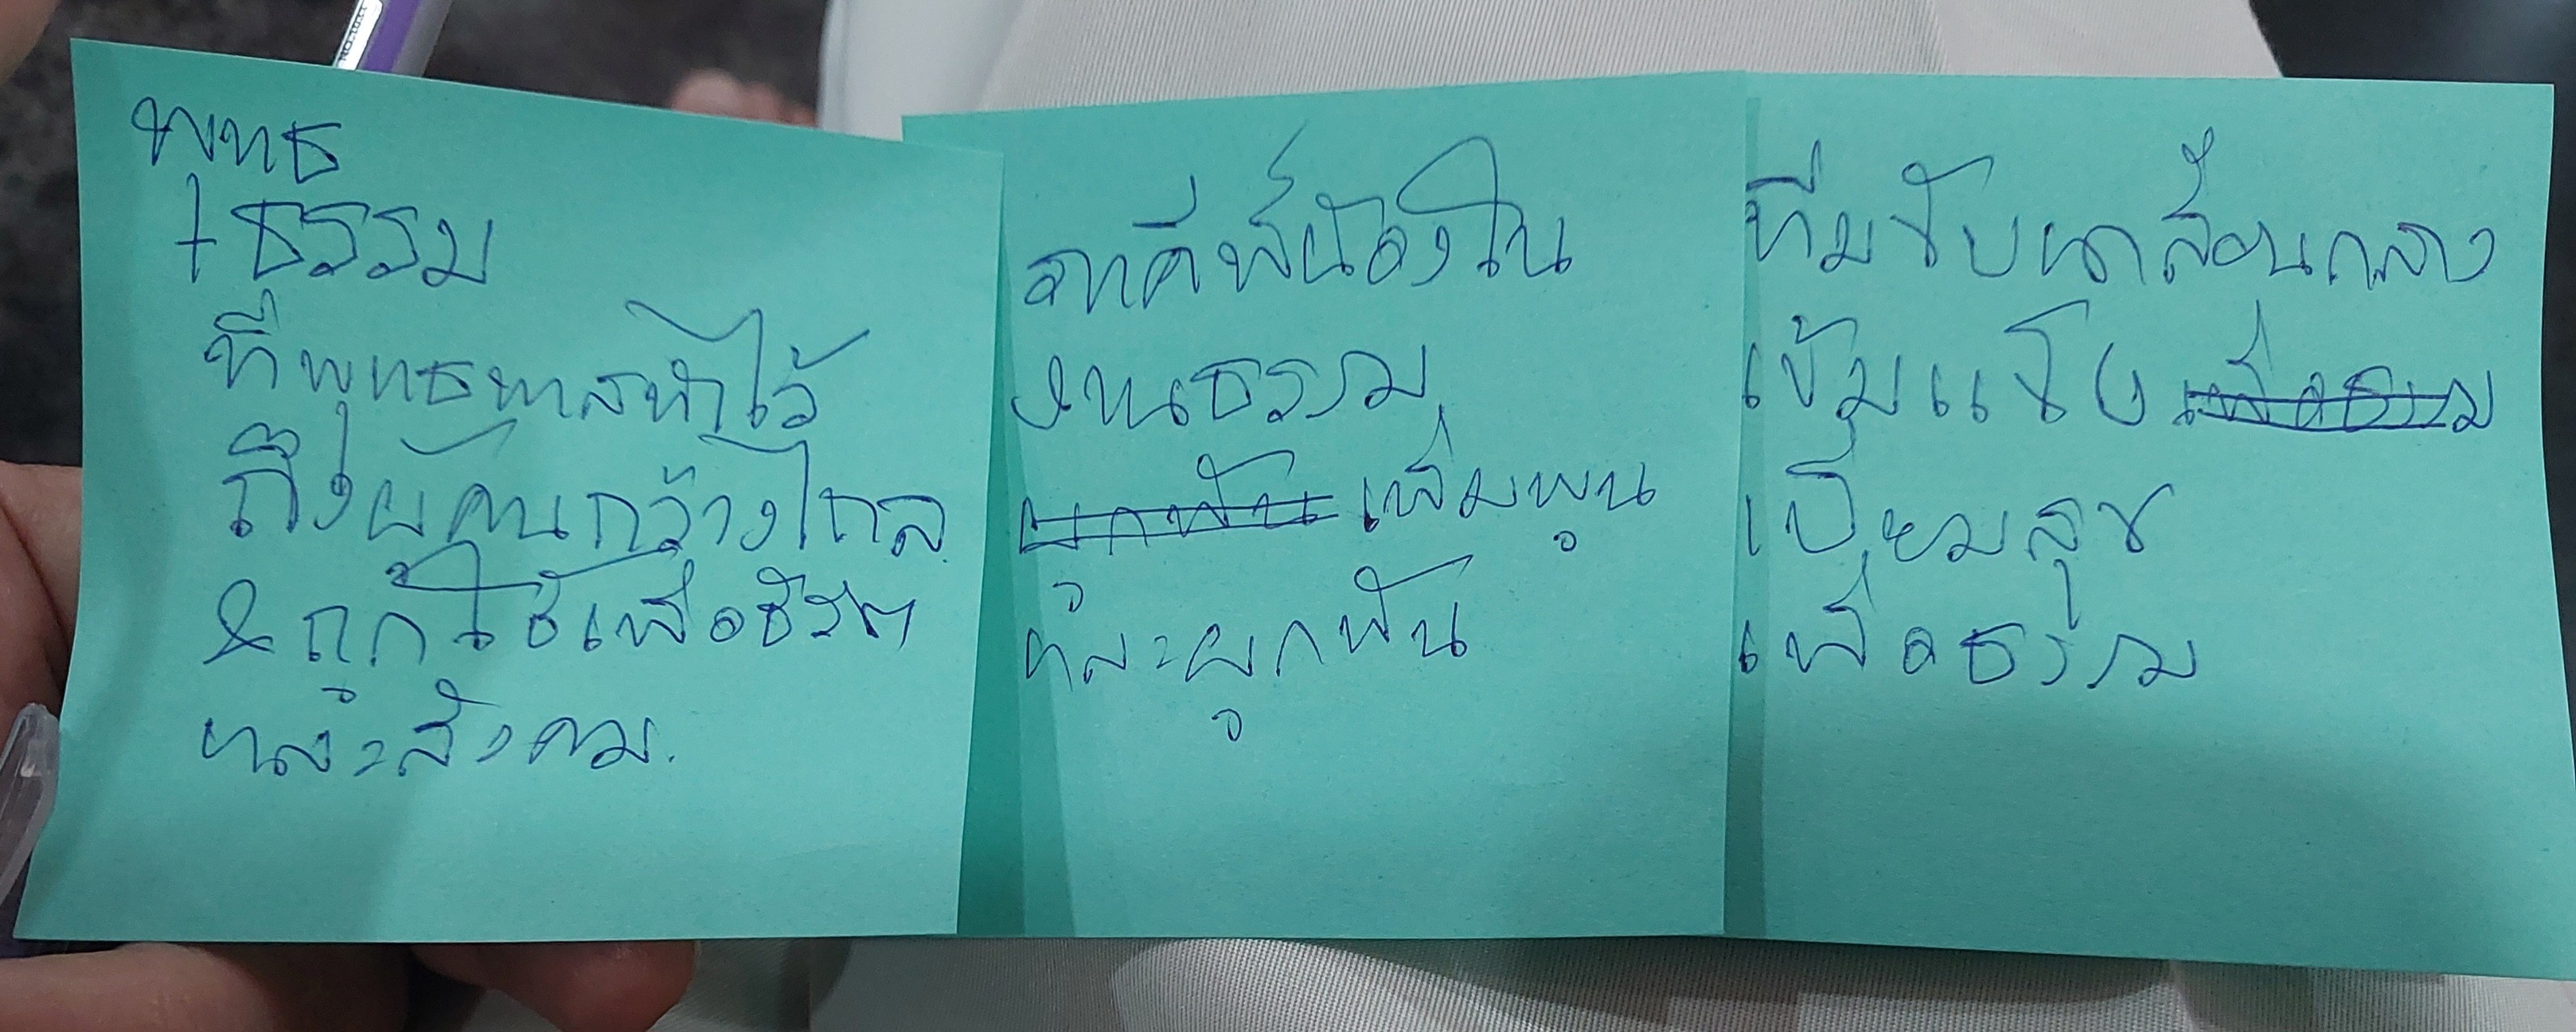 พุทธ
+ธรรม
ที่พุทธทาสทำไว้
ถึงผู้คนกว้างไกล
&ถูกใช้เพื่อชีวิต
และสังคม.
ภาคีพี่น้องใน
งานธรรม
ผูกพัน เพิ่มพูน
และผูกพัน
ทีมขับเคลื่อนกลาง
เข้มแข็ง เพื่อธรรม
เปี่ยมสุข
เพื่อธรรม